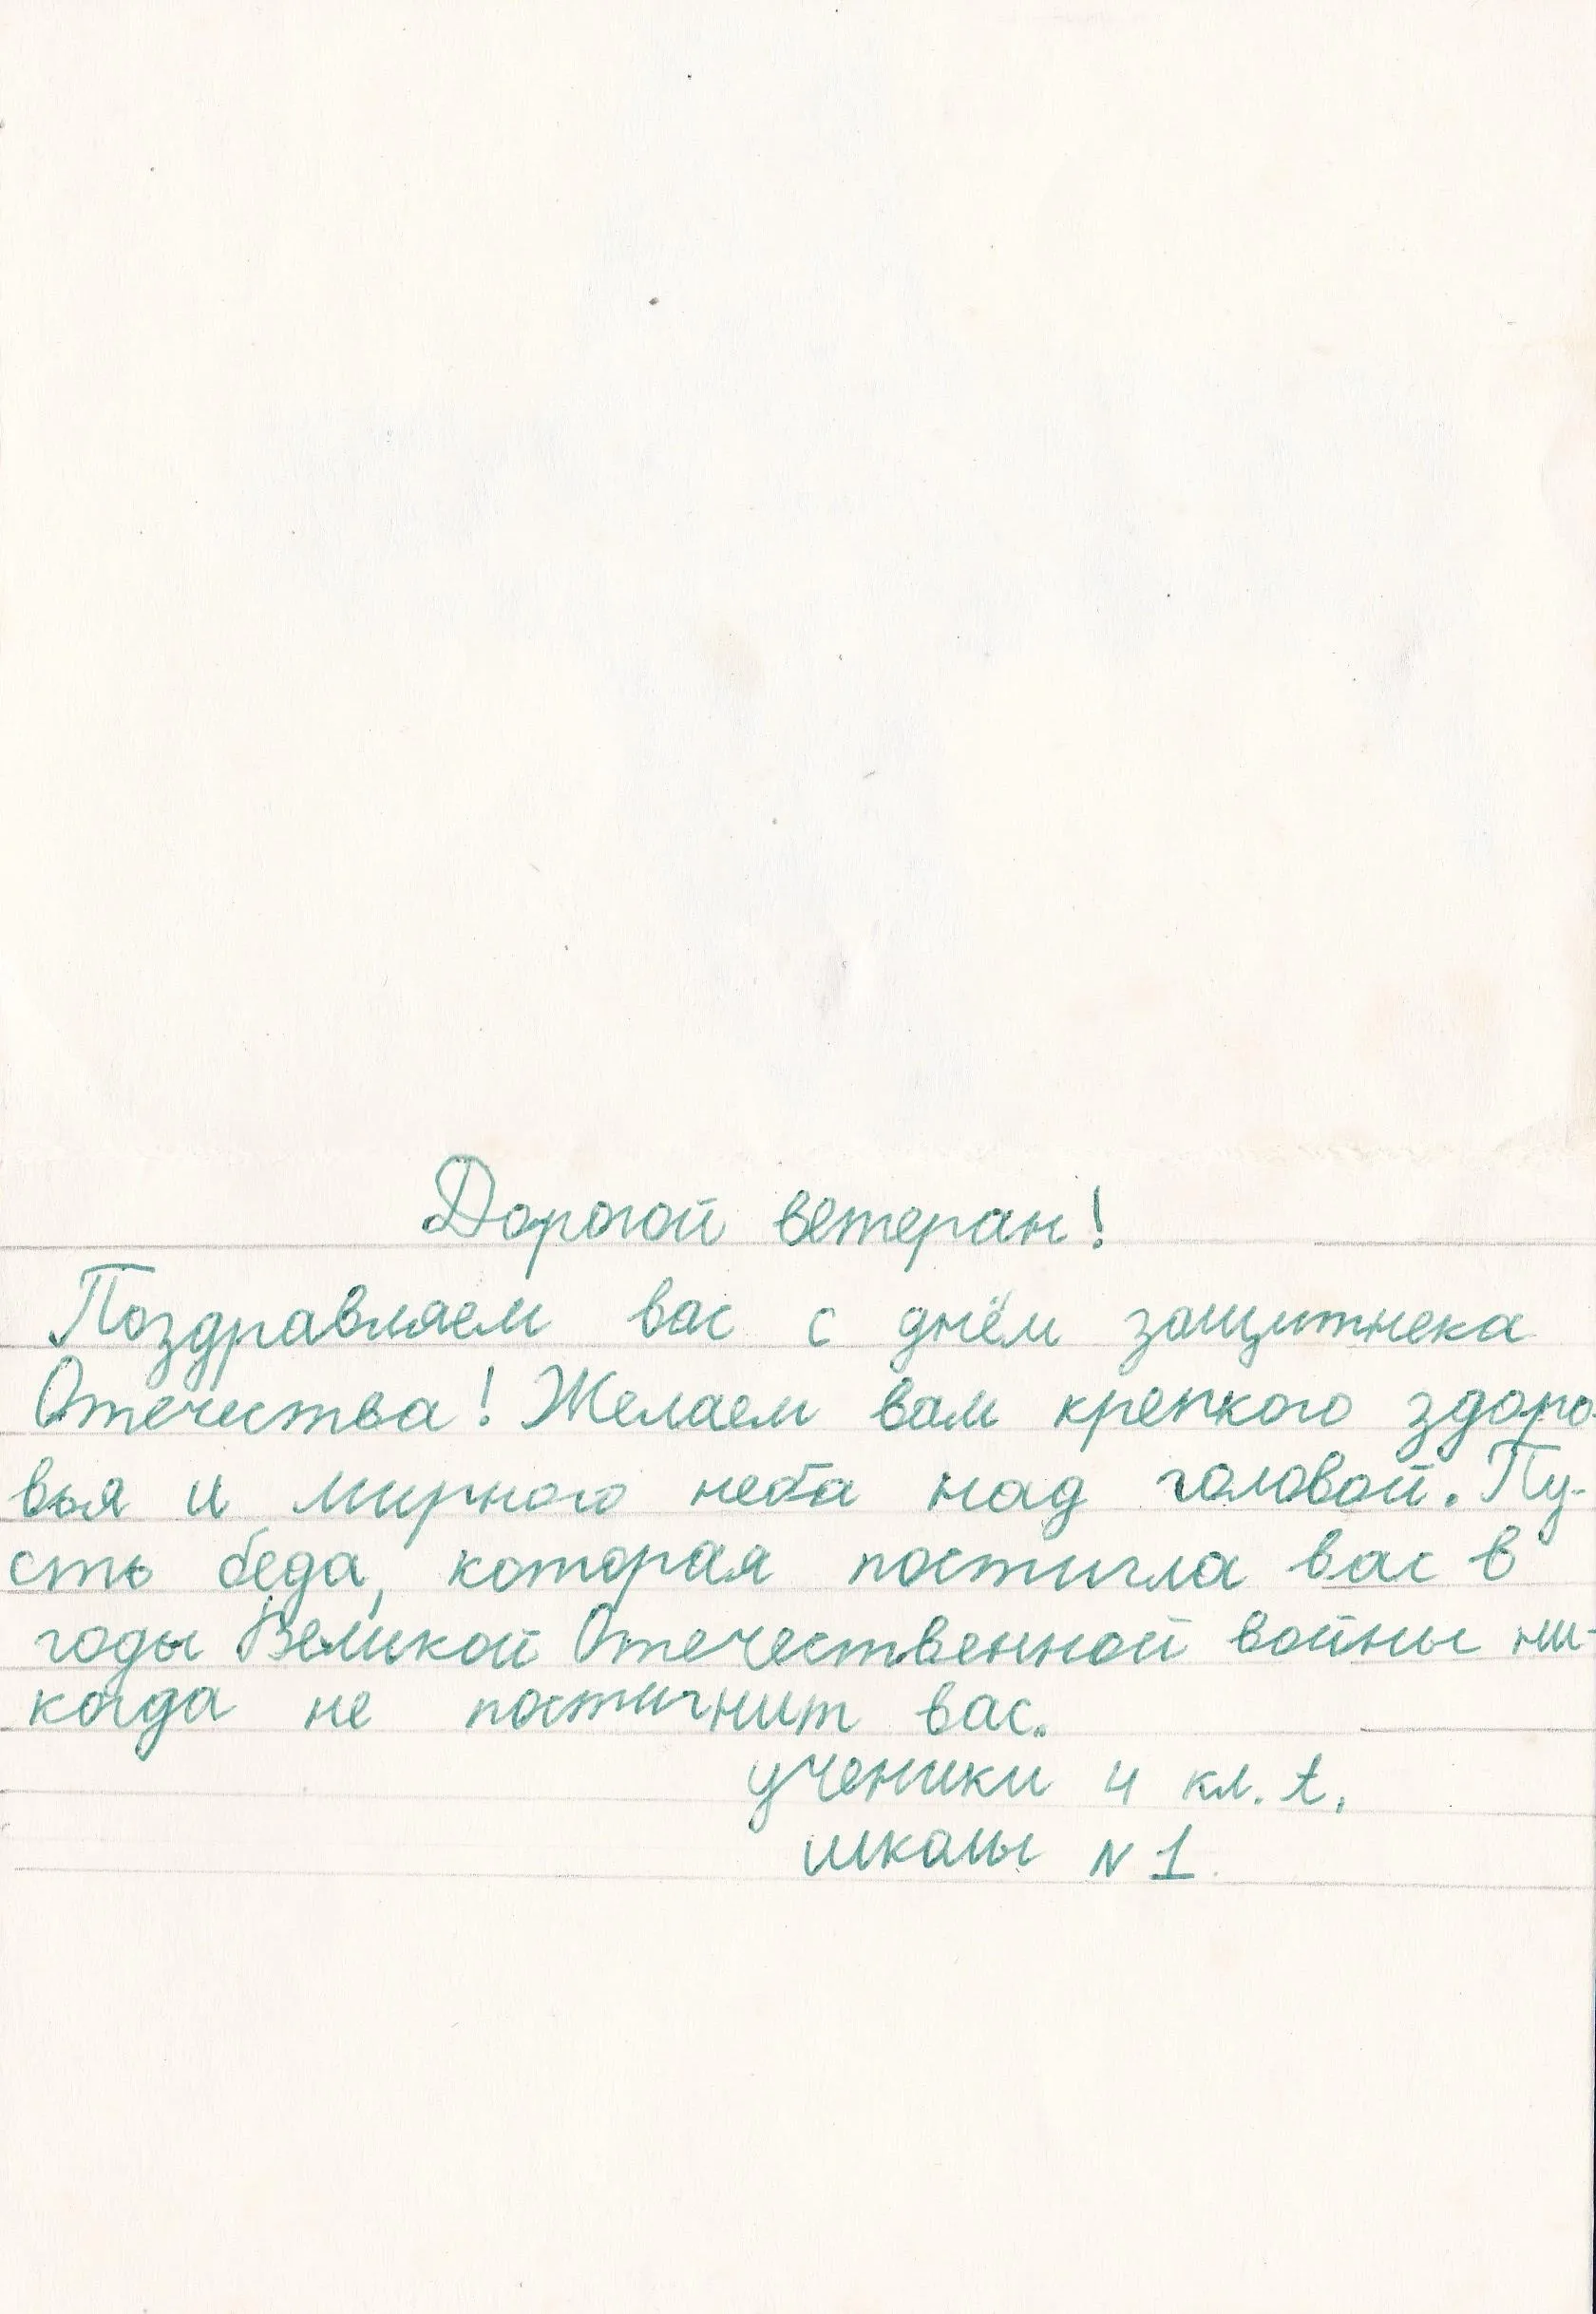 Дорогой ветеран!
Поздравляем вас с днём защитнека
Отечества! Желаем вам крепкого здоро-
вья и мирного неба над головой. Пу-
сть беда, которая постигла вас в
годы Великой Отечественной войны ни-
когда не постигнит вас.
ученики 4 кл. t.
школы N 1.